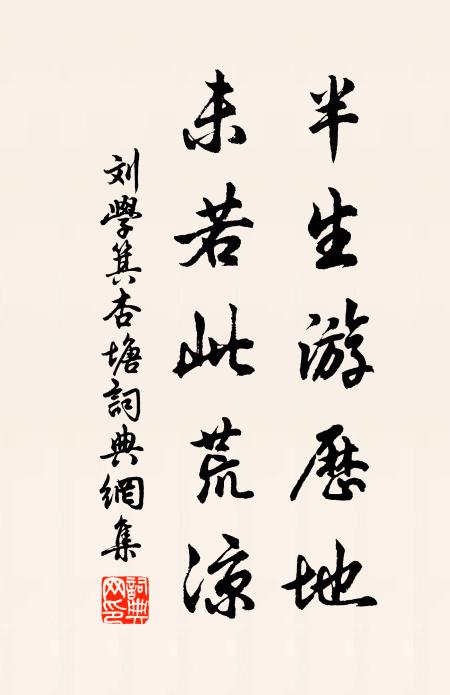 半生游歷地
未若此荒凉
刘學箕杏塘詞典網集
詞典網印